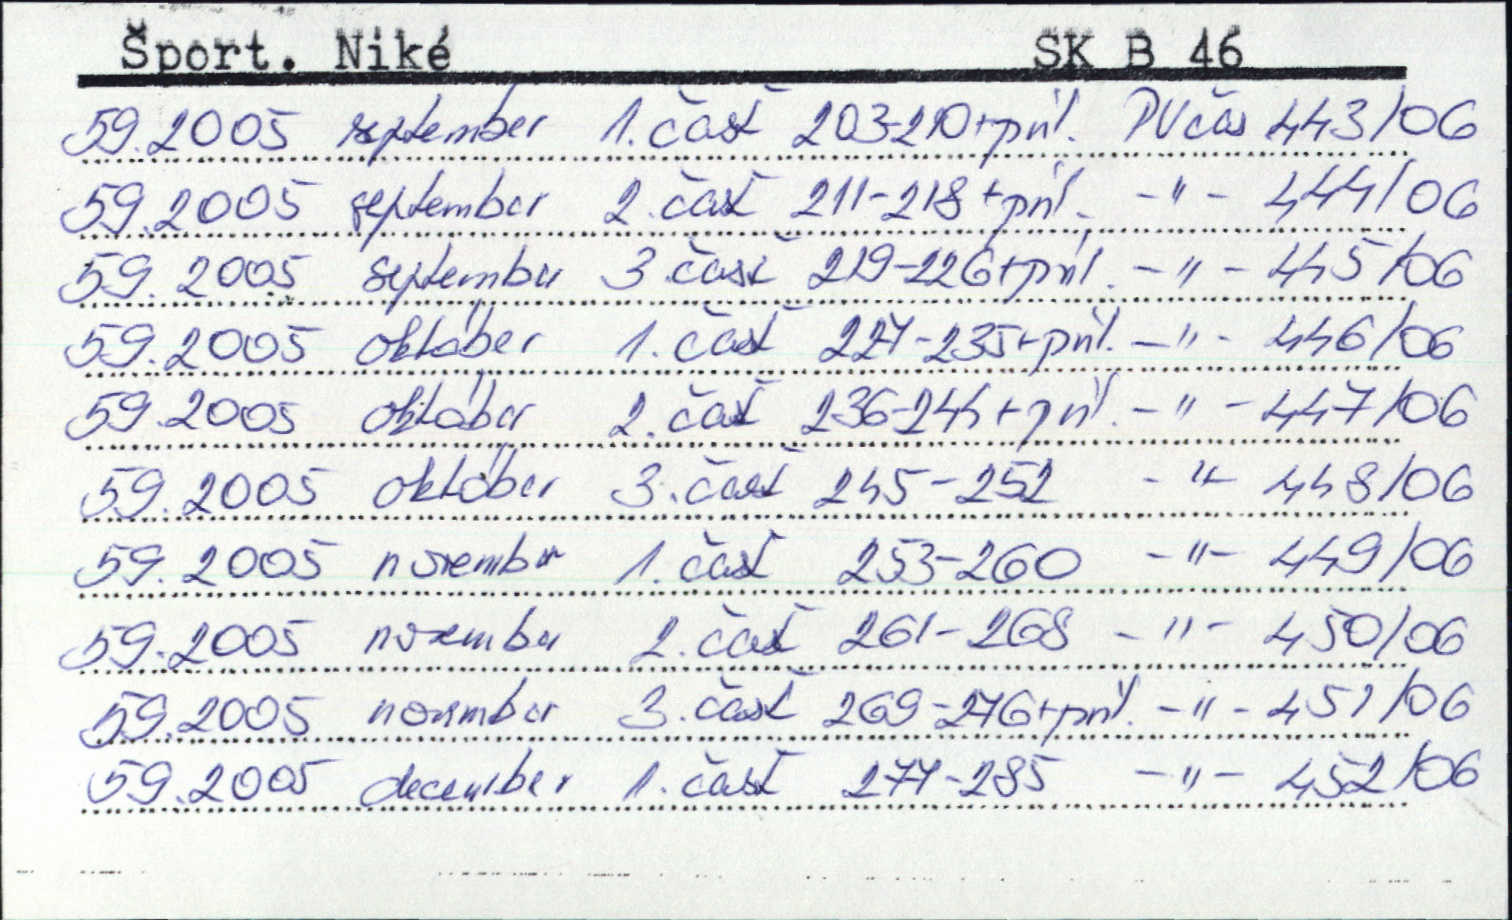 Šport. Niké SK B 46
59.2005 september 1. časť 203-210+príl. PV čas 443/06
59.2005 september 2. časť 211-218+príl. -"- 444/06
59.2005 september 3. časť 219-226+príl. -"- 445/06
59.2005 október 1. časť 227-235+príl. -"- 446/06
59.2005 október 2. časť 236-244+príl. -"- 447/06
59.2005 október 3. časť 245-252 -"- 448/06
59.2005 november 1. časť 253-260 -"- 449/06
59.2005 november 2. časť 261-268 -"- 450/06
59.2005 november 3. časť 269-276+príl. -"- 451/06
59.2005 december 1. časť 277-285 -"- 452/06